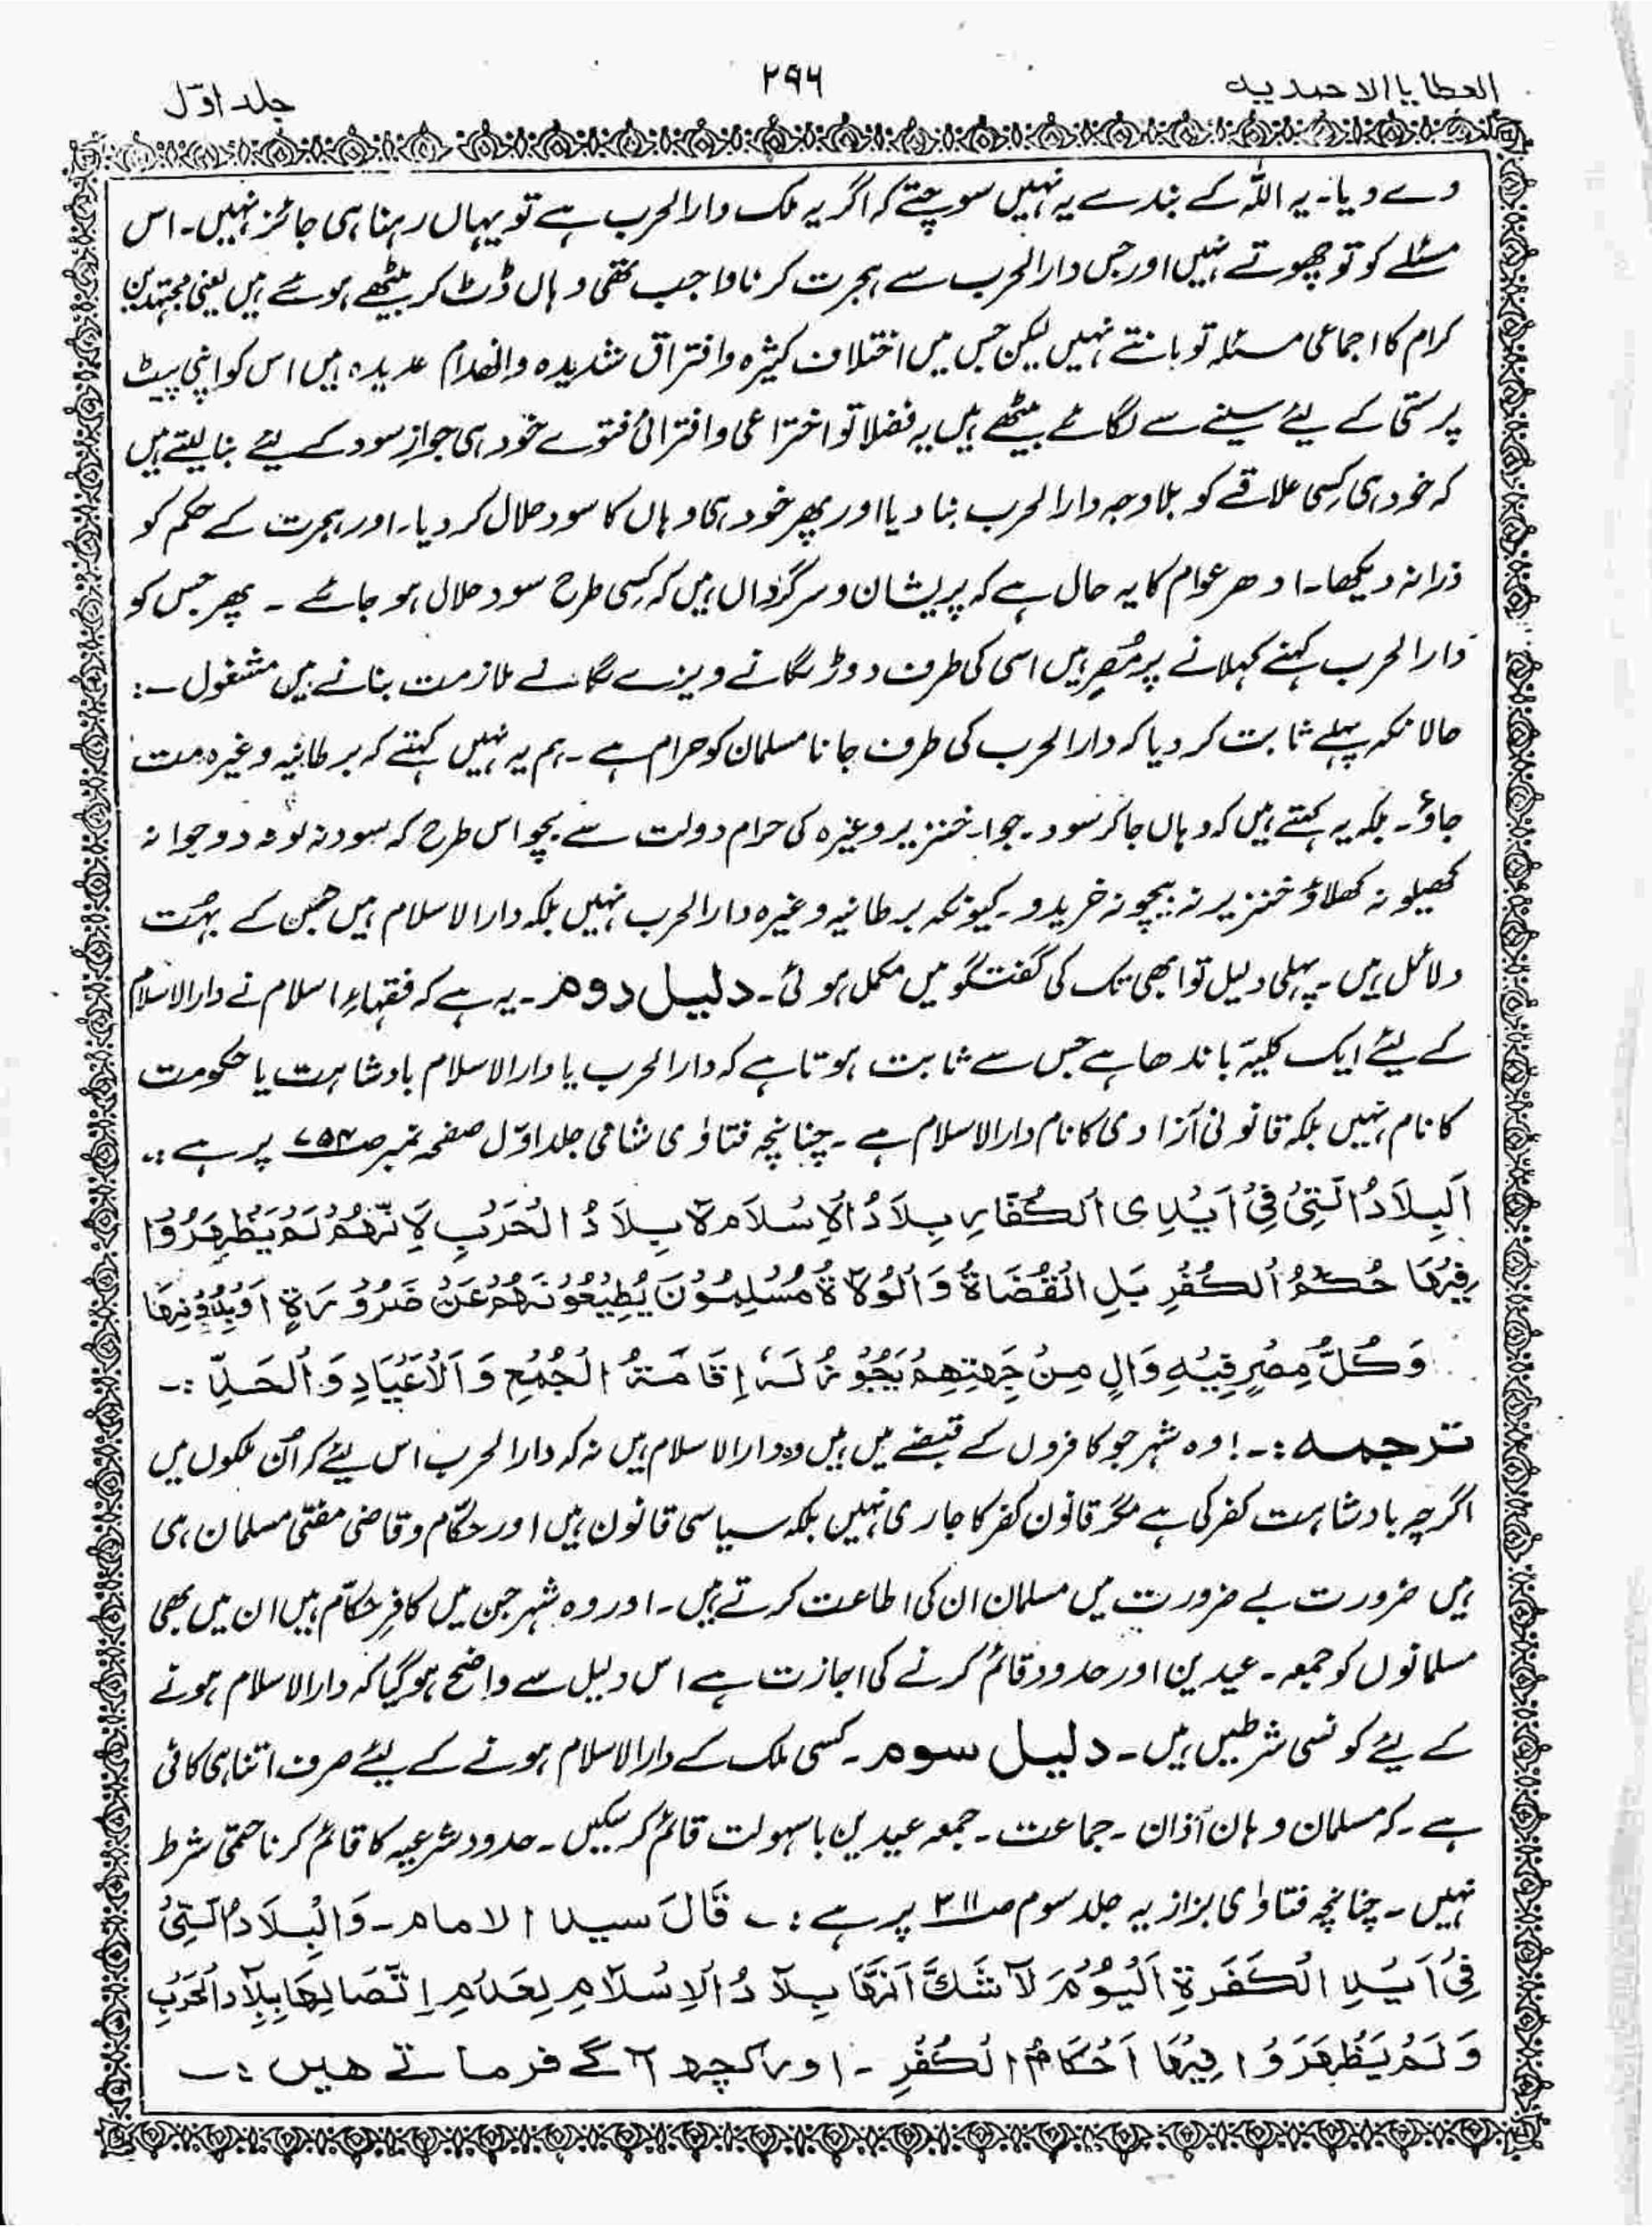 العطایا الاحمدیہ
۲۹۶
جلد اوّل
دے دیا۔ یہ اللہ کے بندے یہ نہیں سوچتے کہ اگر یہ ملک دارالحرب ہے تو یہاں رہنا ہی جائز نہیں۔ اس
مسئلے کو تو چھوتے نہیں اور جس دارالحرب سے ہجرت کرنا واجب تھی وہاں ڈٹ کر بیٹھے ہوئے ہیں یعنی مجتہدین
کرام کا اجماعی مسئلہ تو مانتے نہیں لیکن جس میں اختلاف کثیرہ وافتراق شدیدہ وانفصام عدیدہ ہیں اس کو اپنی پیٹ
پرستی کے لیئے سینے سے لگائے بیٹھے ہیں یہ فضلا تو اختراعی وافترائی فتوے خود ہی جوازِ سود کے لیئے بنا لیتے ہیں
کہ خود ہی کِسی علاقے کو بلا وجہ دارالحرب بنا دیا اور پھر خود ہی وہاں کا سود حلال کر دیا۔ اور ہجرت کے حکم کو
ذرا نہ دیکھا۔ ادھر عوام کا یہ حال ہے کہ پریشان و سرگرداں ہیں کہ کِسی طرح سود حلال ہو جائے ۔ پھر جس کو
دارالحرب کہنے کہلانے پر مُصِر ہیں اسی کی طرف دوڑ لگانے ویزے لگانے ملازمت بنانے میں مشغول :۔
حالانکہ پہلے ثابت کر دیا کہ دارالحرب کی طرف جانا مسلمان کو حرام ہے ۔ ہم یہ نہیں کہتے کہ برطانیہ وغیرہ مت
جاؤ۔ بلکہ یہ کہتے ہیں کہ وہاں جا کر سود۔ جوا۔ خنزیر وغیرہ کی حرام دولت سے بچو اس طرح کہ سود نہ لو نہ دو جوا نہ
کھیلو نہ کھلاؤ خنزیر نہ بیچو نہ خریدو۔ کیونکہ برطانیہ وغیرہ دارالحرب نہیں بلکہ دارالاسلام ہیں جس کے بہُت
دلائل ہیں ۔ پہلی دلیل تو ابھی تک کی گفتگو میں مکمل ہوئی۔ دلیل دوم۔ یہ ہے کہ فقہاءِ اسلام نے دارالاسلام
کے لیئے ایک کلیّہ باندھا ہے جس سے ثابت ہوتا ہے کہ دارالحرب یا دارالاسلام بادشاہت یا حکومت
کا نام نہیں بلکہ قانونی آزادی کا نام دارالاسلام ہے ۔ چنانچہ فتاوٰی شامی جلد اوّل صفحہ نمبر صـ۷۵۴ پر ہے :۔
اَلْبِلَادُ الَّتِیْ فِیْ اَیْدِی الْکُفَّارِ بِلَادُ الْاِسْلَامِ لَا بِلَادُ الْحَرْبِ لِاَنَّھُمْ لَمْ یَظْھَرُوْا
فِیْھَا حُکْمُ الْکُفْرِ بَلِ الْقُضَاۃُ وَالْوُلَاۃُ مُسْلِمُوْنَ یُطِیْعُوْنَھُمْ عَنْ ضَرُوْرَۃٍ اَوْ بِدُوْنِھَا
وَکُلُّ مِصْرٍ فِیْہِ وَالٍ مِنْ جِھَتِھِمْ یَجُوْزُ لَہٗ اِقَامَۃُ الْجُمَعِ وَالْاَعْیَادِ وَ الْحَدِّ :۔
ترجمہ :۔ ! وہ شہر جو کافروں کے قبضے میں ہیں وہ دارالاسلام ہیں نہ کہ دارالحرب اس لیئے کہ اُن ملکوں میں
اگرچہ بادشاہت کفر کی ہے مگر قانون کفر کا جاری نہیں بلکہ سیاسی قانون ہیں اور حکّام و قاضی مفتی مسلمان ہی
ہیں ضرورت بے ضرورت میں مسلمان ان کی اطاعت کرتے ہیں۔ اور وہ شہر جن میں کافر حکاّم ہیں ان میں بھی
مسلمانوں کو جمعہ ۔ عیدین اور حدود قائم کرنے کی اجازت ہے اس دلیل سے واضح ہو گیا کہ دارالاسلام ہونے
کے لیئے کونسی شرطیں ہیں ۔ دلیل سوم ۔ کسی ملک کے دارالاسلام ہونے کے لیئے صرف اتنا ہی کافی
ہے ۔ کہ مسلمان وہاں آذان ۔ جماعت ۔ جمعہ عیدین با سہولت قائم کر سکیں ۔ حدود شرعیہ کا قائم کرنا حتمی شرط
نہیں ۔ چنانچہ فتاوٰی بزازیہ جلد سوم صـ۳۱۱ پر ہے :۔ قَالَ سید الامام ۔ وَالْبِلَادُ الَّتِیْ
فِیْ اَیْدِ الْکَفَرَۃِ اَلْیَوْمَ لَا شَکَّ اَنَّھَا بِلَادُ الْاِسْلَامِ لِعَدَمِ اِتِّصَالِھَا بِبِلَادِ الْحَرْبِ
وَلَمْ یَظْھَرُوْا فِیْھَا اَحْکَامُ الْکُفْرِ ۔ اور کچھ آگے فرماتے ھیں :۔